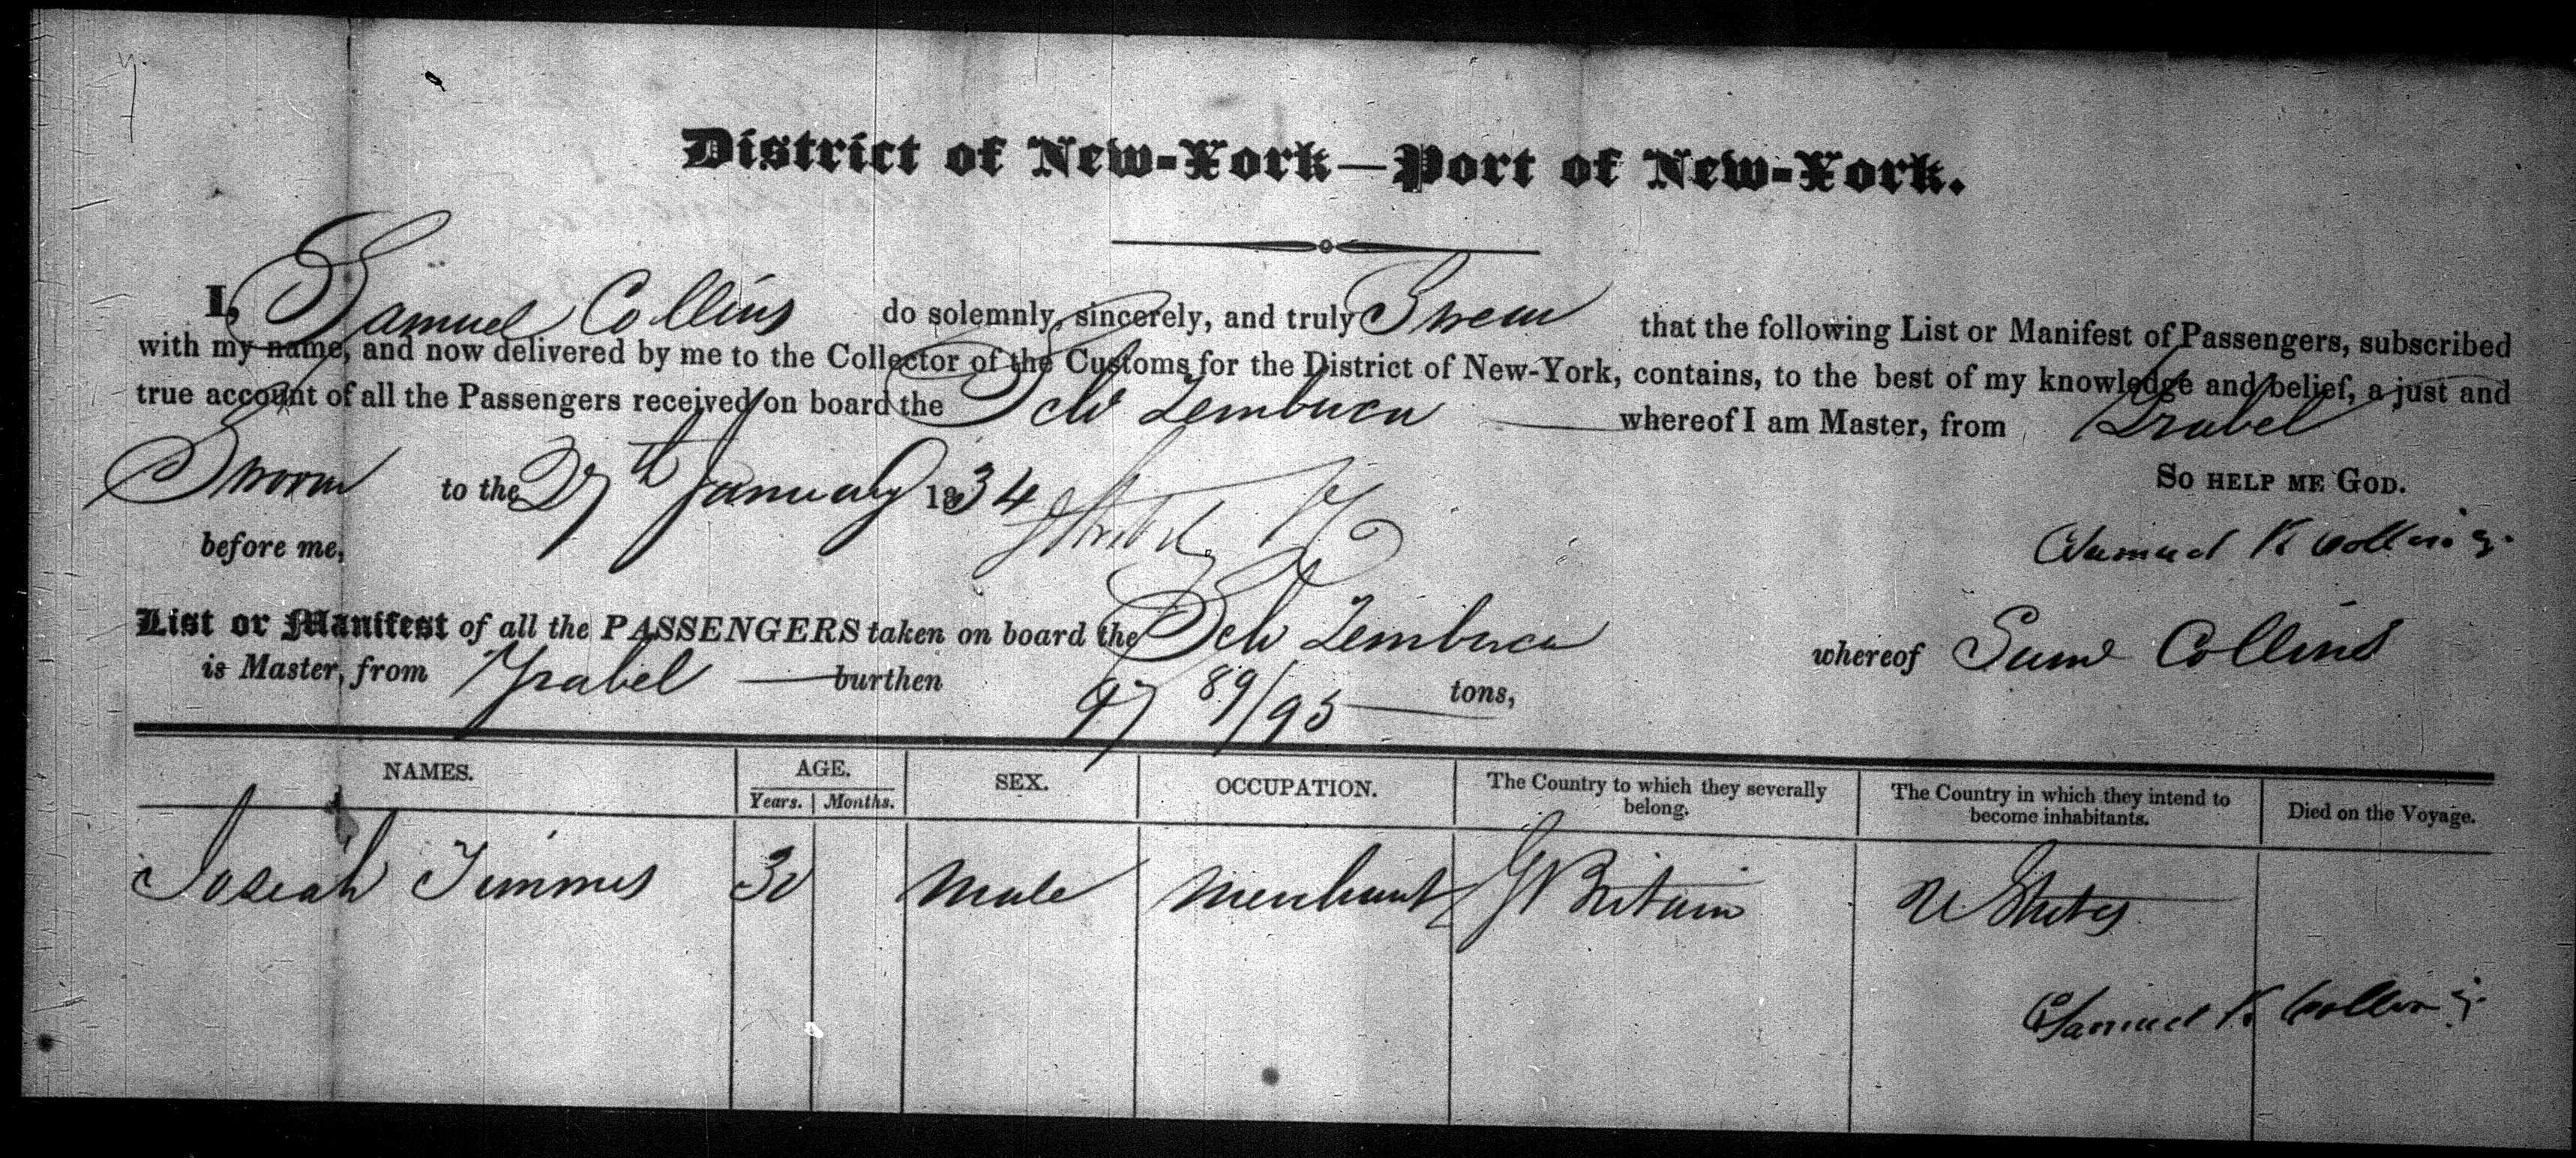 District of New-York—Port of New-York.
I, Samuel Collins do solemnly, sincerely, and truly Swear that the following List or Manifest of Passengers, subscribed
with my name, and now delivered by me to the Collector of the Customs for the District of New-York, contains, to the best of my knowledge and belief, a just and
true account of all the Passengers received on board the Schr Zembuca whereof I am Master, from Yzabel
Sworn to the 27th January 1834 So help me God.
before me, Samuel K Collins
List or Manifest of all the PASSENGERS taken on board the Schr Zembuca whereof Saml Collins
is Master, from Yzabel burthen 97 89/95 tons,
NAMES. AGE. SEX. OCCUPATION. The Country to which they severally belong. The Country in which they intend to become inhabitants. Died on the Voyage.
Years. Months.
Josiah Timmis 30 Male Merchant G Britain U States
Samuel K. Collins